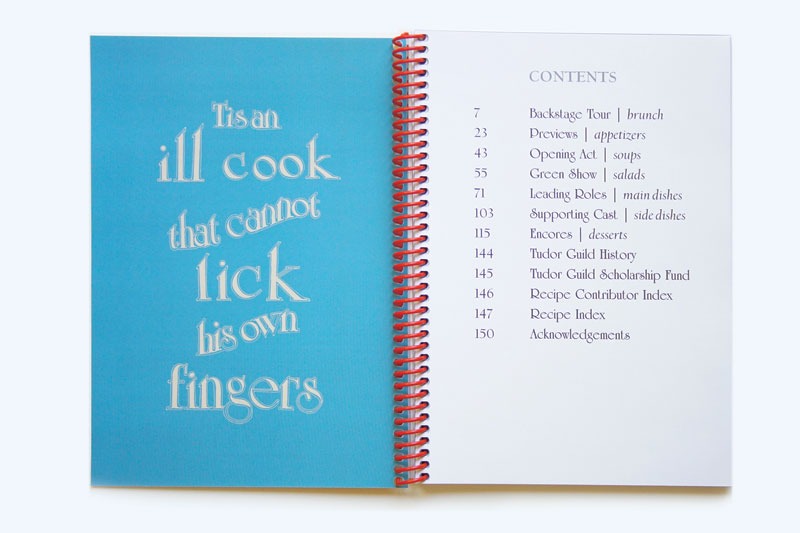 Tis an
ill cook
that cannot
lick
his own
fingers
CONTENTS
7 Backstage Tour | brunch
23 Previews | appetizers
43 Opening Act | soups
55 Green Show | salads
71 Leading Roles | main dishes
103 Supporting Cast | side dishes
115 Encores | desserts
144 Tudor Guild History
145 Tudor Guild Scholarship Fund
146 Recipe Contributor Index
147 Recipe Index
150 Acknowledgements